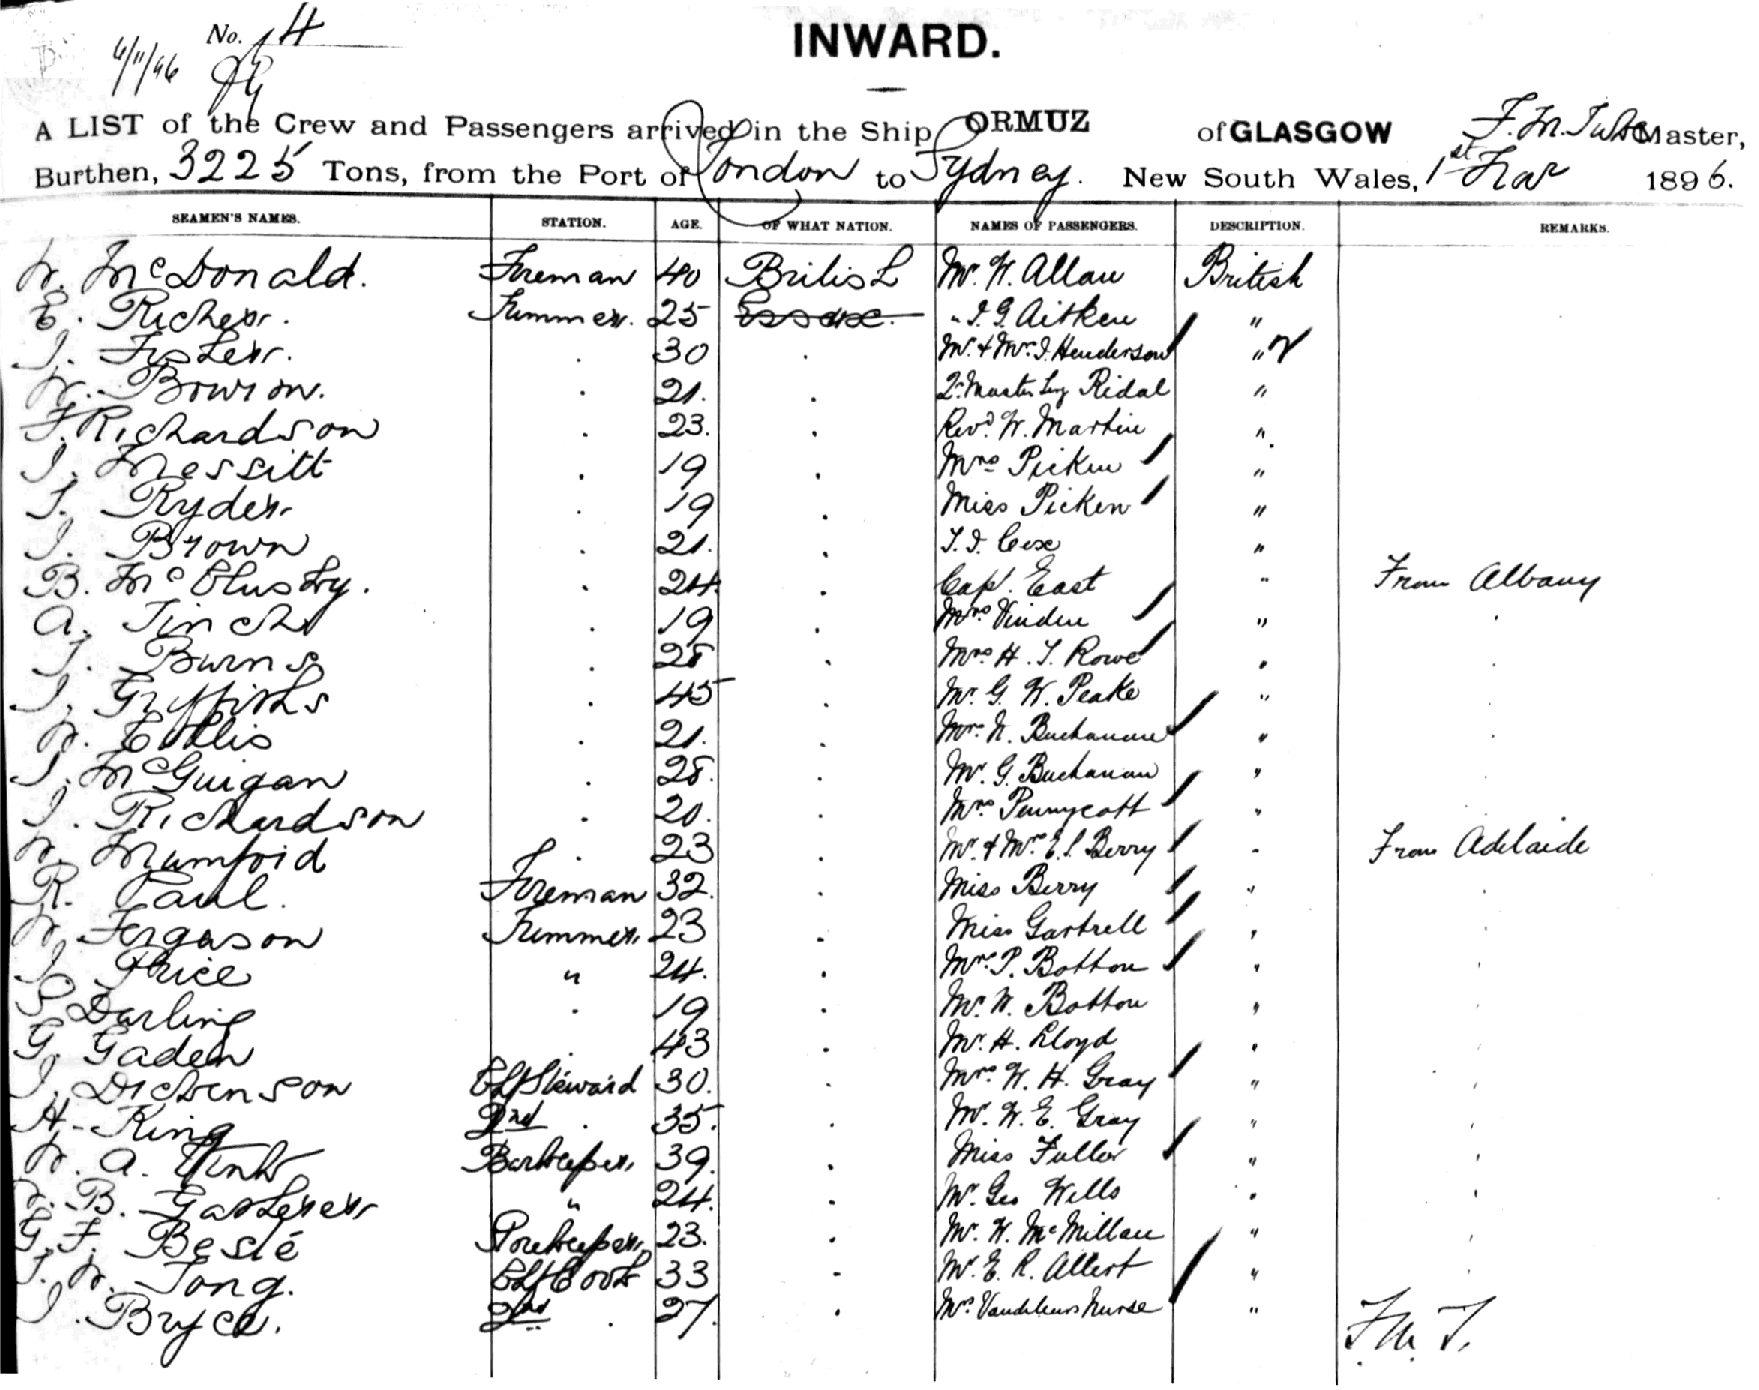 No. 14
6/11/96
INWARD.
A LIST of the Crew and Passengers arrived in the Ship ORMUZ of GLASGOW F. M. Master,
Burthen, 3225 Tons, from the Port of London to Sydney. New South Wales, 1st 1896.
SEAMEN'S NAMES. STATION. AGE. OF WHAT NATION. NAMES OF PASSENGERS. DESCRIPTION. REMARKS.
W. McDonald. Foreman 40 British Mr. W. Allan British
E. Richer. Trimmer. 25 " J. G. Aitken "
J. Fisher. . 30 . Mr. & Mrs. J. Henderson "
W. Bowron. . 21. . Ridal "
F. Richardson . 23. . Revd. W. Martin "
J. Messitt . 19 . Mrs Picken "
J. Ryder. . 19 . Miss Picken "
J. Brown . 21. . "
B. McClusky. . 24. . Capt. East " From Albany
A. Tinch . 19 . Mrs " .
J. Burns . 28 . Mrs H. J. Rowe " .
J. Griffiths . 45 . Mr. G. W. Peake " .
W. . 21. . Mr. N. Buchanan " .
J. McGuigan . 28. . Mr. G. Buchanan "
J. Richardson . 20. . Mrs Pennycott "
W. Mumford . 23 . Mr. & Mrs. E. S. Berry " From Adelaide
R. Paul. Foreman 32. . Miss Berry " .
W. Ferguson Trimmer. 23 . Miss Gartrell " .
J. Price " 24. . Mr. P. Botton " .
Darling . 19 . Mr. W. Botton " .
G. Gaden . 43 . Mr. H. Lloyd " .
J. Dickenson Ch Steward 30. . Mrs W. H. Gray " .
H. King 2nd . 35. . Mr. W. E. Gray " .
W. A. Barkeeper. 39. . Miss Fuller " .
B. " 24. . Mr. Geo Wells " .
G. F. Besle Storekeeper. 23. . Mr. W. McMillan " .
J. W. Tong. Ch Cook 33 . Mr. E. R. Allert " .
J. Bryce. 2nd . 27. . Nurse "
F. M. T.